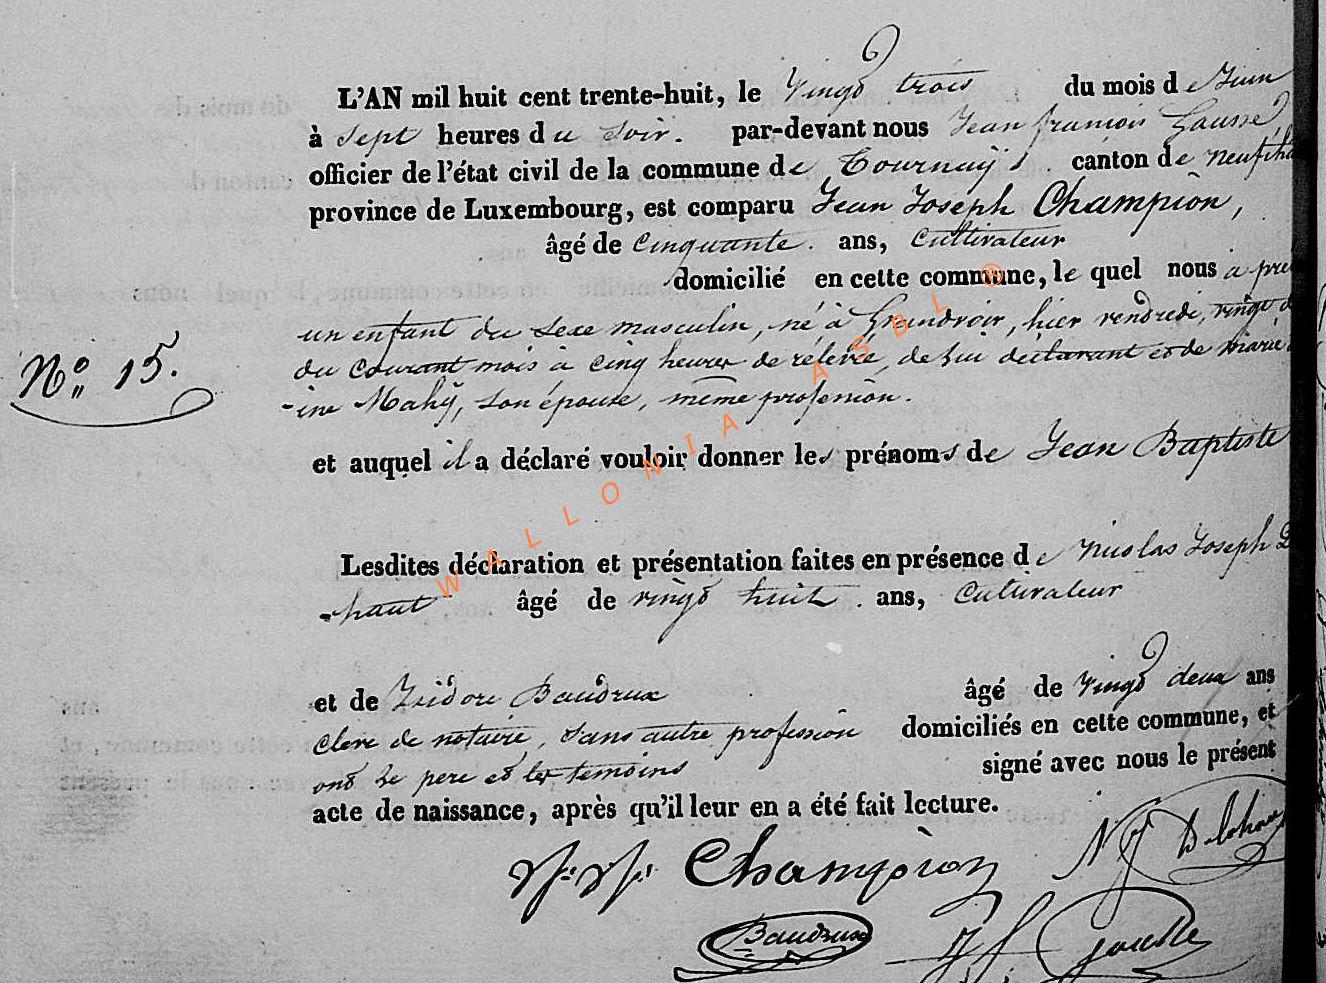 L'AN mil huit cent trente-huit, le vingt trois du mois de Juin
à sept heures du soir. par-devant nous Jean françois
officier de l'état civil de la commune de Tournay, canton de
province de Luxembourg, est comparu Jean Joseph Champion,
âgé de cinquante. ans, cultivateur
domicilié en cette commune, le quel nous a
un enfant du sexe masculin, né à Grandvoir, hier vendredi, vingt
N° 15.
du courant mois à cinq heures de rélévée, de lui déclarant et de marie
-ine Mahÿ, son épouse, même profession.
et auquel il a déclaré vouloir donner les prénoms de Jean Baptiste
Lesdites déclaration et présentation faites en présence de nicolas Joseph
-haut âgé de vingt huit. ans, cultivateur
et de Isidore Baudrux âgé de vingt deux ans
clerc de notaire, sans autre profession domiciliés en cette commune, et
ont le pere et les temoins signé avec nous le présent
acte de naissance, après qu'il leur en a été fait lecture.
J. J. Champion N J Delahaut
Baudrux
WALLONIA ASBL ®